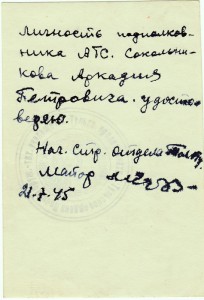 Личность подполков-
ника АТС. Сокольни-
кова Аркадия
Петровича. удосто-
веряю.
Нач. Стр. отдела
Майор
21-7-45